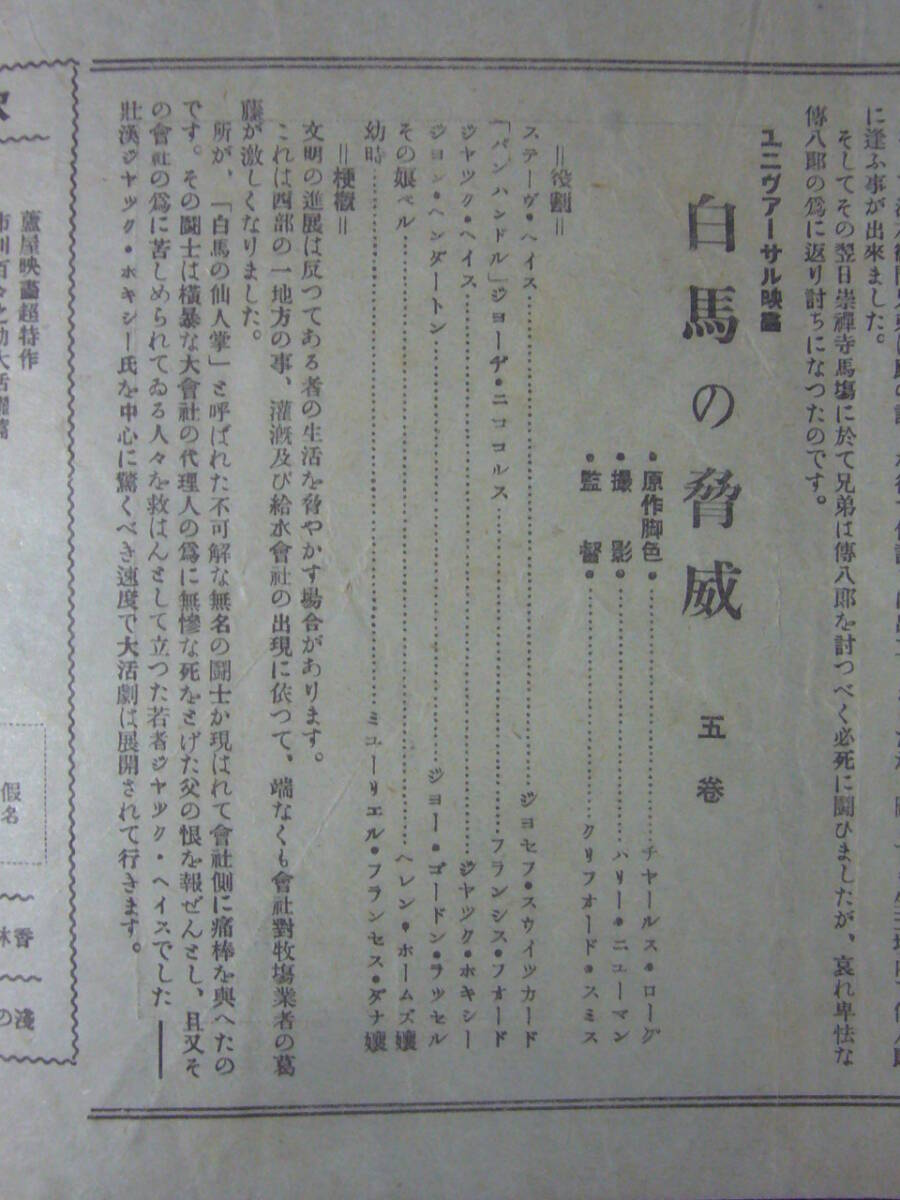 に逢ふ事が出來ました。
そしてその翌日崇禪寺馬塲に於て兄弟は傳八郎を討つべく必死に鬪ひましたが、哀れ卑怯な
傳八郎の爲に返り討ちになつたのです。
ユニヴアーサル映畵
白馬の脅威 五卷
・原作脚色・……チヤールス・ローグ
・撮影・……ハリー・ニユーマン
・監督・……クリフオード・スミス
＝役割＝
ステーヴ・ヘイス……ジヨセフ・スウイツカード
「パンハンドル」ジヨーヂ・ニココルス……フランシス・フオード
ジヤツク・ヘイス……ジヤツク・ホキシー
ジヨン・ヘンダートン……ジヨー・ゴードン・ラツセル
その娘ベル……ヘレン・ホームズ孃
幼時……ミユーリエル・フランセス・ダナ孃
＝梗概＝
文明の進展は反つてある者の生活を脅やかす場合があります。
これは西部の一地方の事、灌漑及び給水會社の出現に依つて、端なくも會社對牧塲業者の葛
藤が激しくなりました。
所が、「白馬の仙人掌」と呼ばれた不可解な無名の闘士か現はれて會社側に痛棒を與へたの
です。その闘士は橫暴な大會社の代理人の爲に無慘な死をとげた父の恨を報ぜんとし、且又そ
の會社の爲に苦しめられてゐる人々を救はんとして立つた若者ジヤツク・ヘイスでした――
壯漢ジヤツク・ホキシー氏を中心に驚くべき速度で大活劇は展開されて行きます。
蘆屋映畵超特作
市川百々之助大活躍篇
假名
香
淺
の